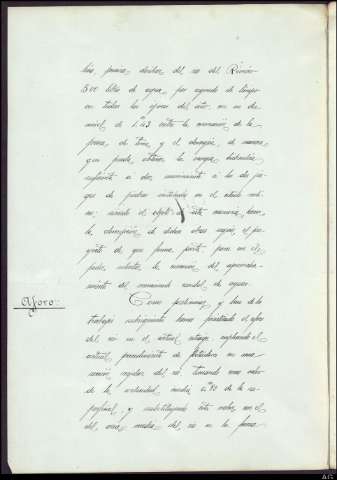 bles, puedan derivar del río del Rincón
500 litros de agua por segundo de tiempo
en todas las épocas del año, con un des
nivel de 1.m43 entre la coronación de la
presa de toma y el desagüe, de manera
que pueda obtener la energía hidráulica
suficiente a dar movimiento a los dos jue
gos de piedras instalados en el citado moli
no; siendo el objeto de esta memoria, hacer
la descripción de dichas obras según el pro
yecto de que forma parte; para su ex
pediente, solicitar la concesión del aprovecha
miento del mencionado caudal de aguas.
Aforo:
Como preliminar y base de los
trabajos subsiguientes hemos practicado el aforo
del río en el actual estiaje empleando el
actual procedimiento de flotadores en una
sección regular del río, tomando como valor
de la velocidad media 0.m80 de la su
perficial, y substituyendo este valor en el
del área media del río en la forma